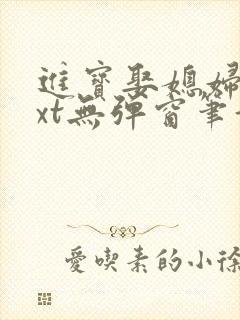 進寶娶媳婦
xt無彈窗筆
愛喫素的小徐